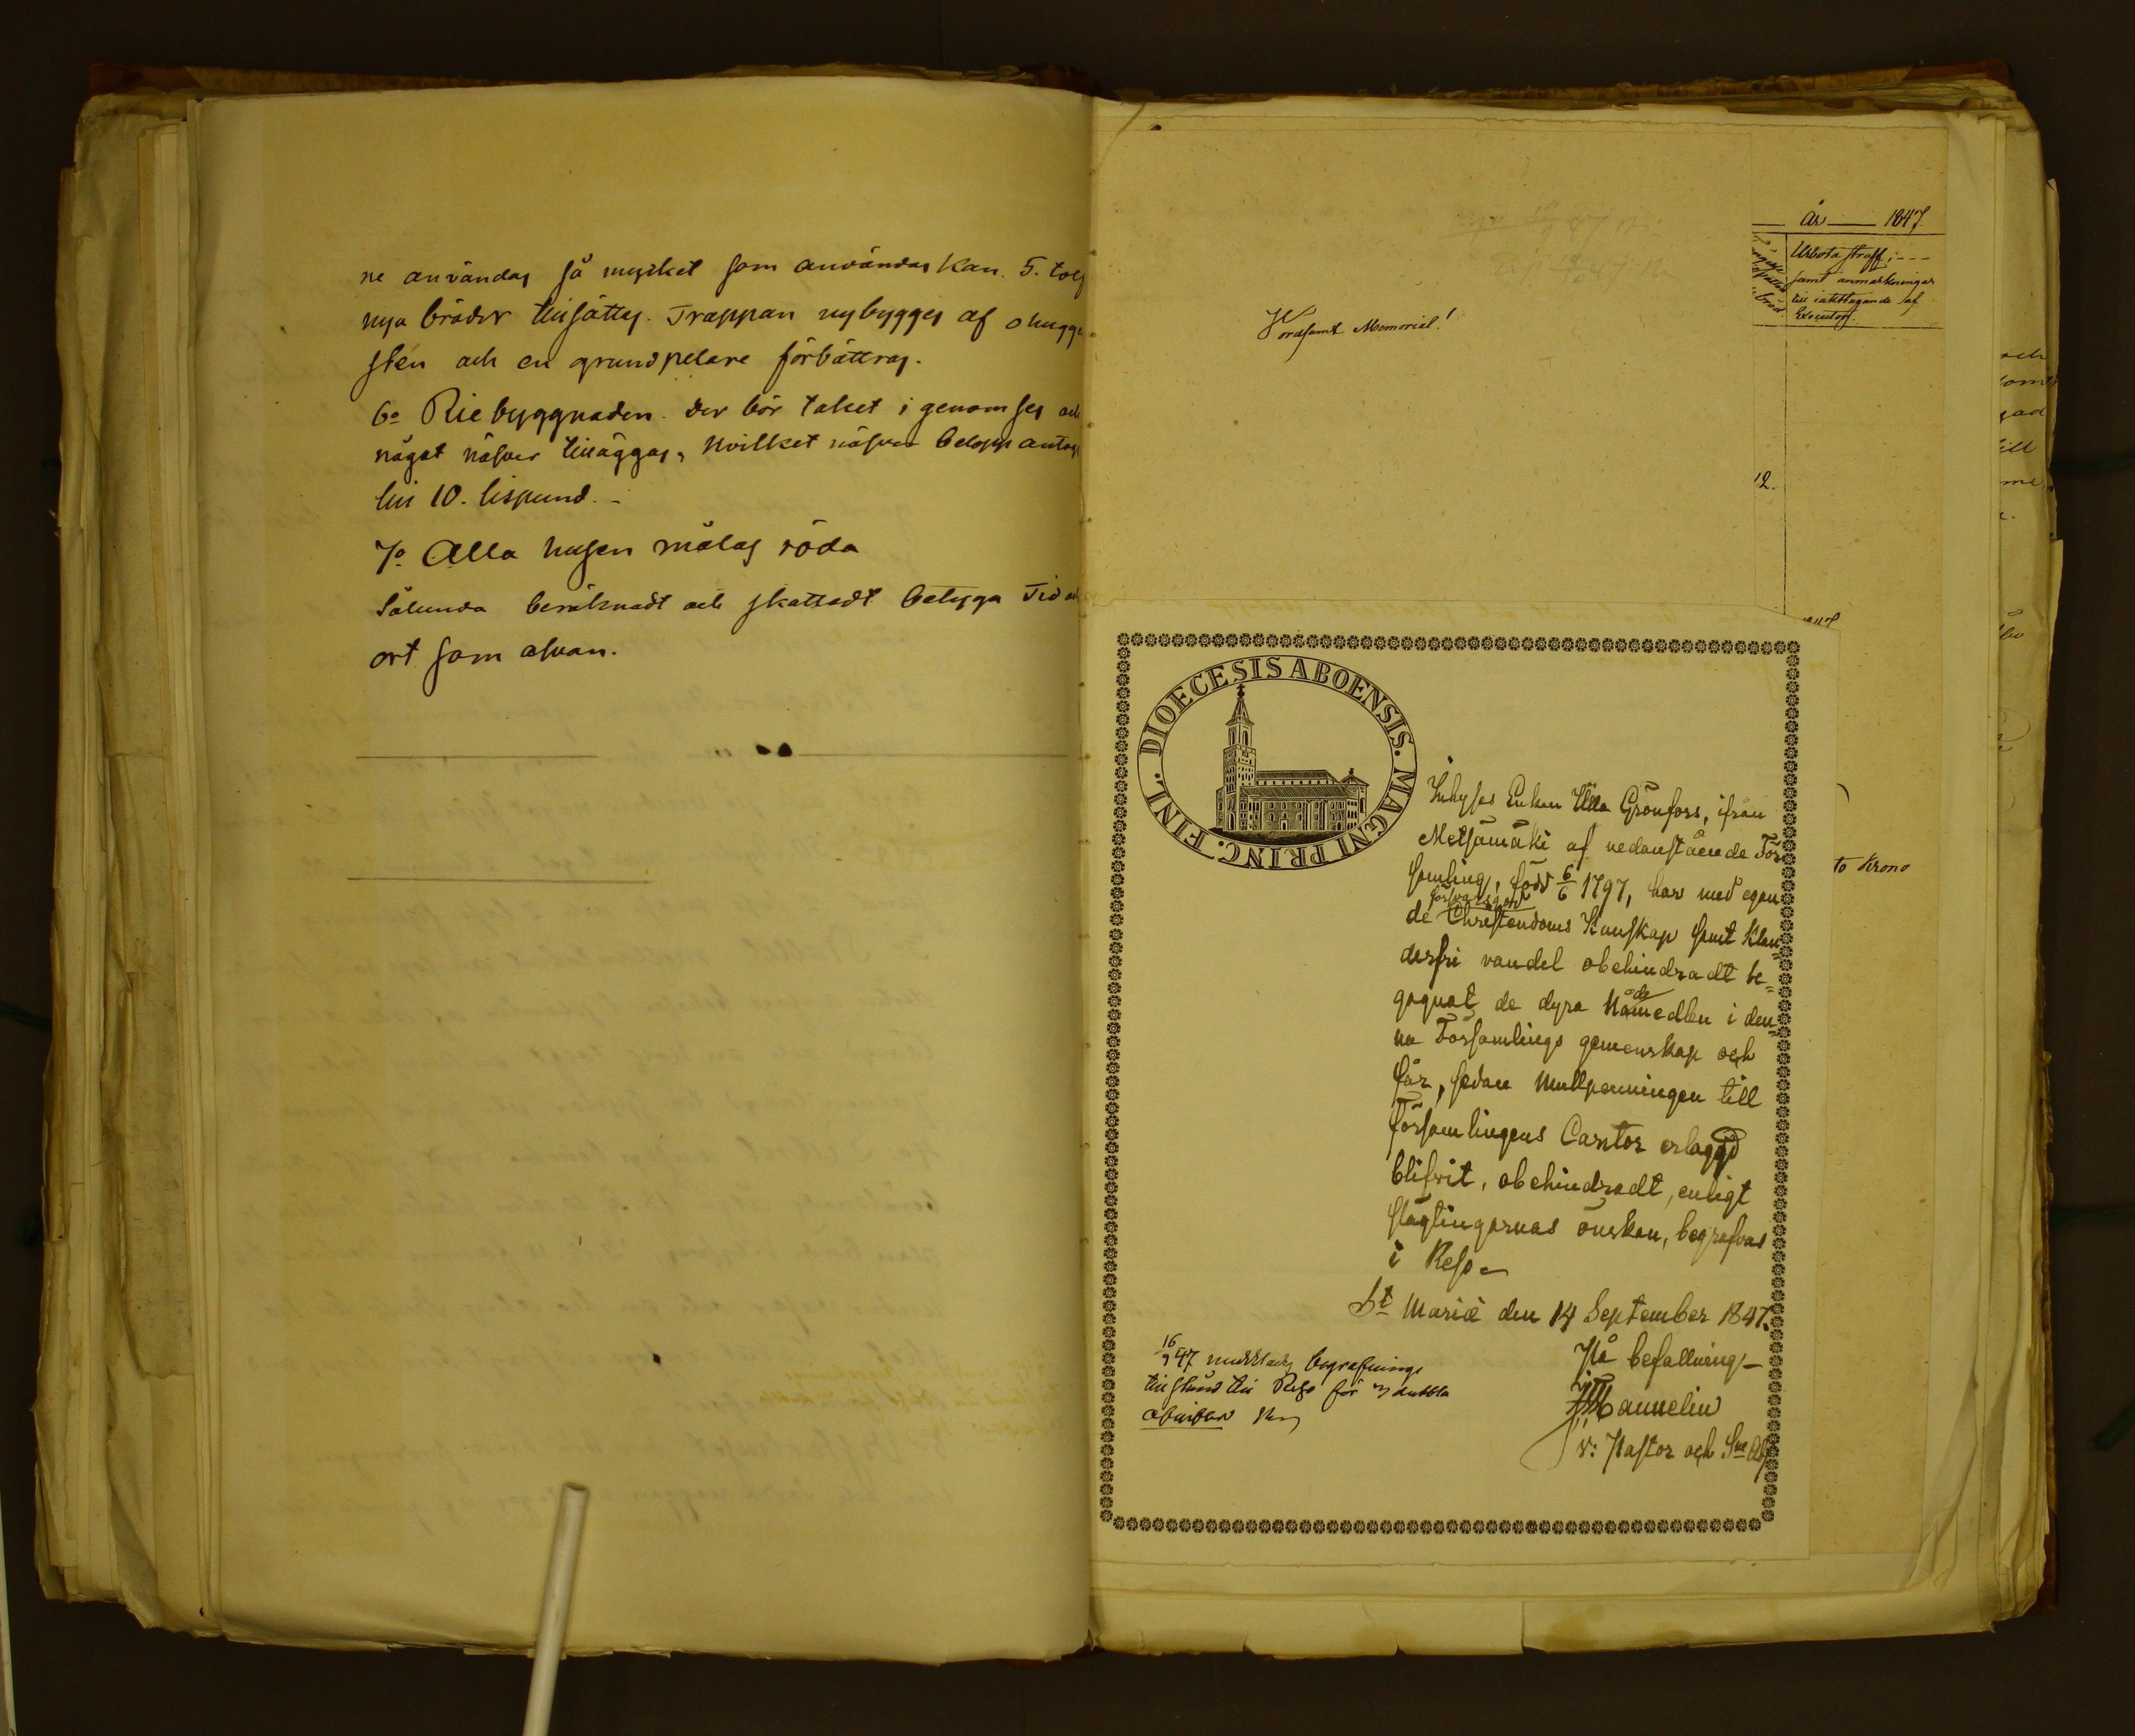 ne användas så mycket som användas kan. 5. tolf
nya bräder tillsättes. Trappan nybygges af ohugge
sten och en grundpelare förbättras.
6o Riebyggnaden. Der bör taket igenomses och
något näfver tilläggas, hvilket näfver belopp antages
till 10. lispund.
7o Alla husen målas röda
Sålunda beräknadt och skattadt betyga Tid och
ort som ofvan.
Vördsamt Memorial!
År 1847
Urbota straff;
samt anmärkningar
till iakttagande af
Executor.
12.
to Krono
DIOECESIS ABOENSIS. MAGNI PRINC. FINL.
Inhyses Enkan Ulla Grönfors, ifrån
Metsämäki af nedanstående För
samling, född 6/6 1797, har med egan
de försvarlig Christendoms Kunskap samt klan
derfri vandel obehindradt be=
gagnat de dyra Nådemedlen i den
na Församlings gemenskap och
får, sedan Mullpenningen till
Församlingens Cantor erlagd
blifvit, obehindradt, enligt
släglingarnas önskan, begrafvas
i Reso
St Mariæ den 14 September 1847.
På befallning
Mannelin
v: Pastor och
16/9 47 meddelades begrafnings
tillstånd till Reso för dubbla
afgifter